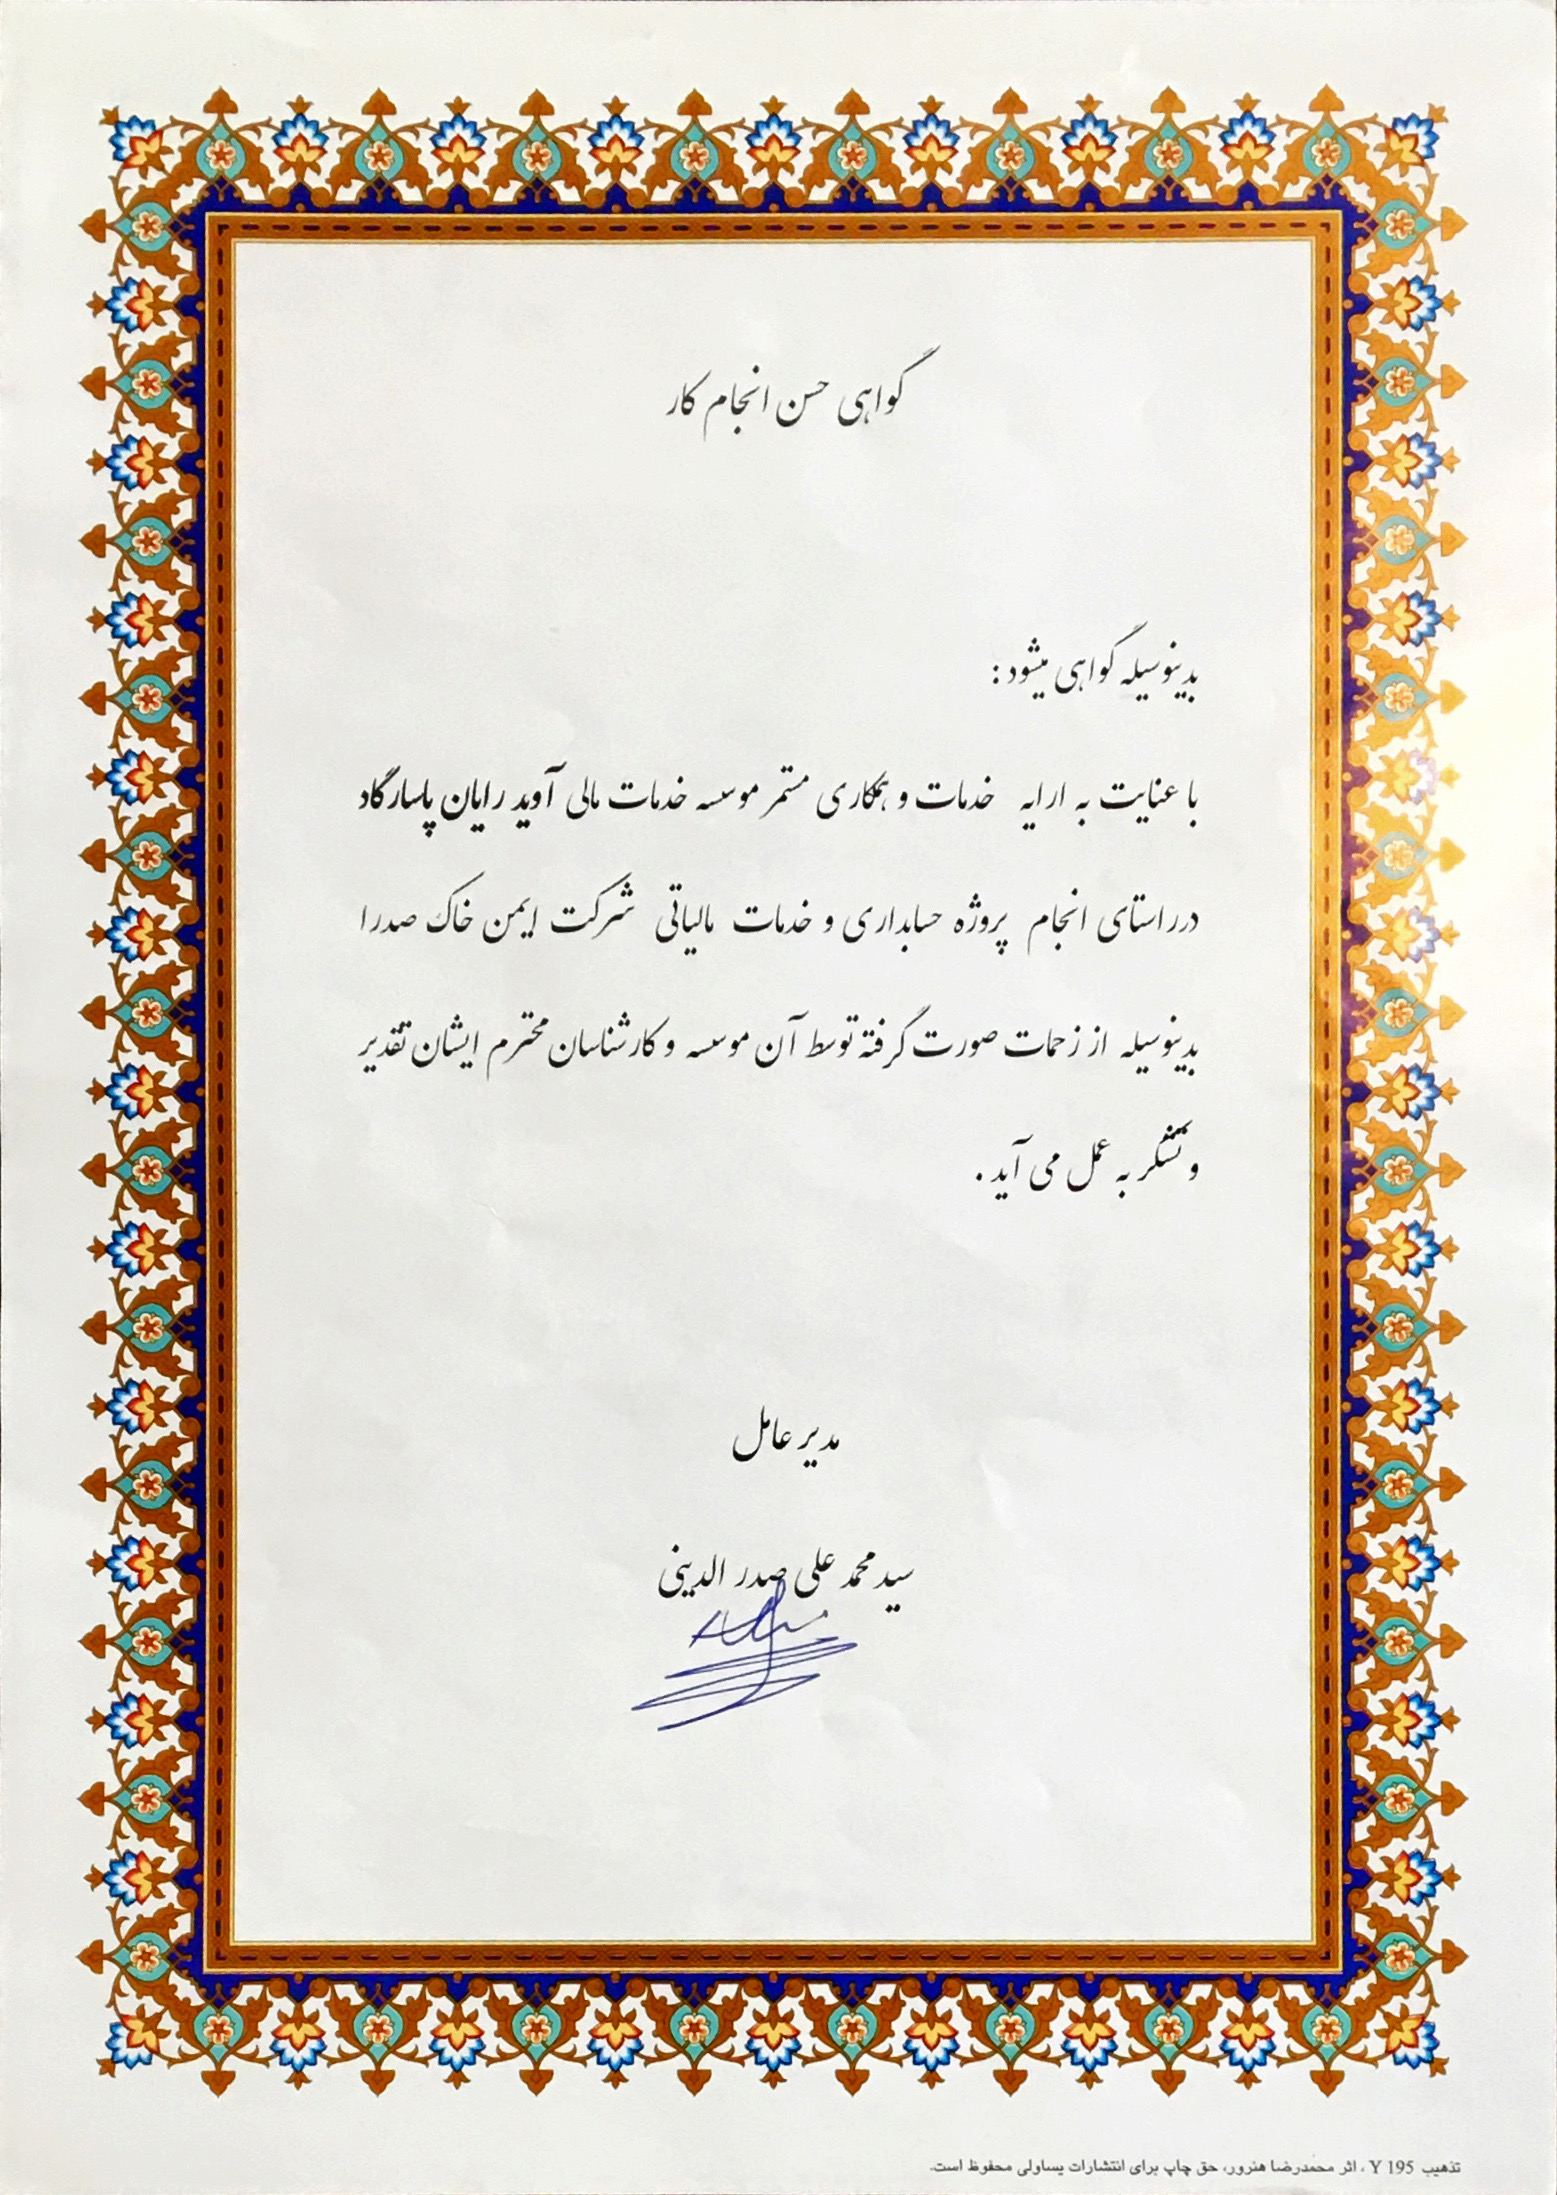 گواهی حسن انجام کار
بدینوسیله گواهی میشود :
با عنایت به ارایه خدمات و همکاری مستمر موسسه خدمات مالی آوید رایان پاسارگاد
درراستای انجام پروژه حسابداری و خدمات مالیاتی شرکت ایمن خاک صدرا
بدینوسیله از زحمات صورت گرفته توسط آن موسسه و کارشناسان محترم ایشان تقدیر
و تشکر به عمل می آید .
مدیر عامل
سید محمد علی صدر الدینی
تذهیب Y 195 ، اثر محمدرضا هنرور، حق چاپ برای انتشارات یساولی محفوظ است.